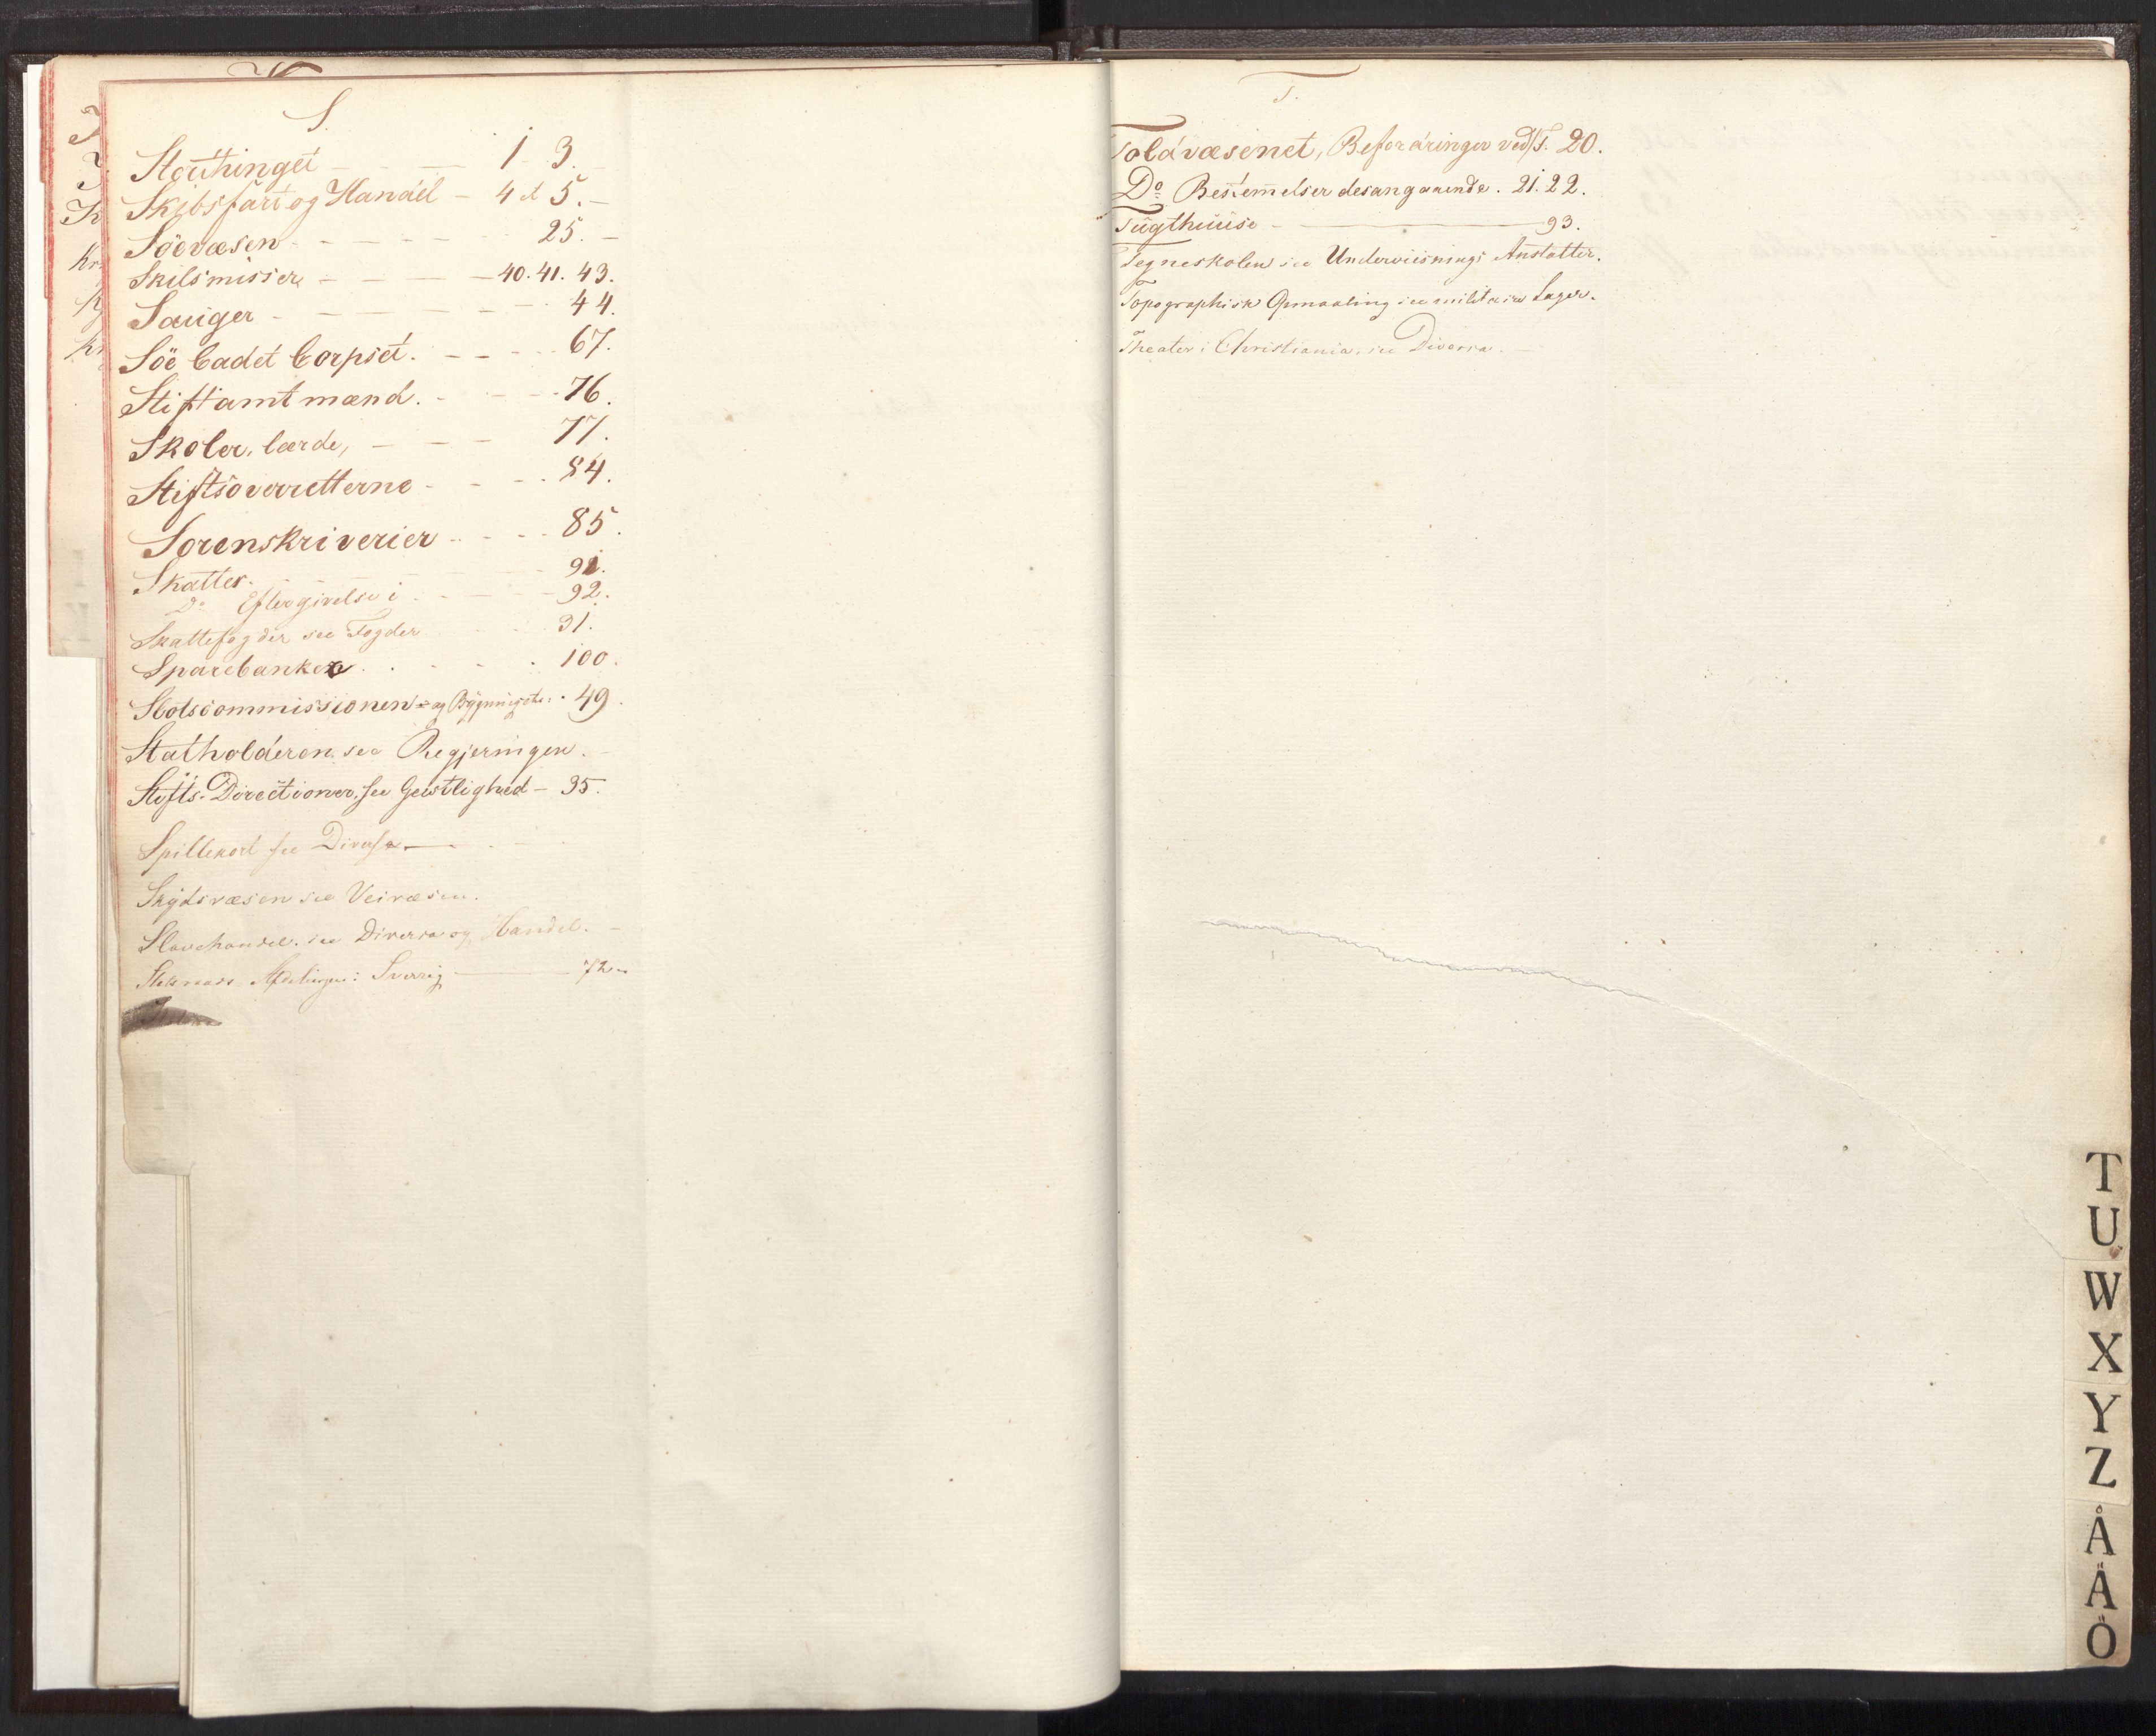 S.
Storthinget - - - 1 - 3.
Skibsfart og Handel - 4 à 5. -
Söevæsen - - - - - 25. -
Skilsmisser - - - 40. 41. 43.
Sauger - - - - - - 44.
Söe Cadet Corpset. - - - - 67.
Stiftamtmænd. - - - - 76.
Skoler, lærde, - - - 77.
Stiftsoverretterne - - - . 84.
Sorenskriverier - - - - 85.
Skatter. - - - - - 91.
Do Eftergivelse i - - - - 92.
Skattefogder see Fogder - - 31.
Sparebanker . . - - . 100.
Slotscommissionen = og Bygningste: . 49.
Statholderen, see Regjeringen. -
Stifts-Directioner, see Geistlighed - 35.
Spillekort see Diversa - - -
Skydsvæsen see Veivæsen.
Slavehandel. see Diversa og Handel. -
Afdelingen i Sverrig - 72.
T.
Toldvæsenet, Befordringer ved T. 20.
Do Bestemelser desangaaende. 21. 22.
Tugthuuse - - 93.
Tegneskolen see Underviisnings Anstalter.
Topographisk Opmaaling see militaire Sager.
Theater i Christiania, see Diversa. -
T
U
W
X
Y
Z
Å
Ä
Ö